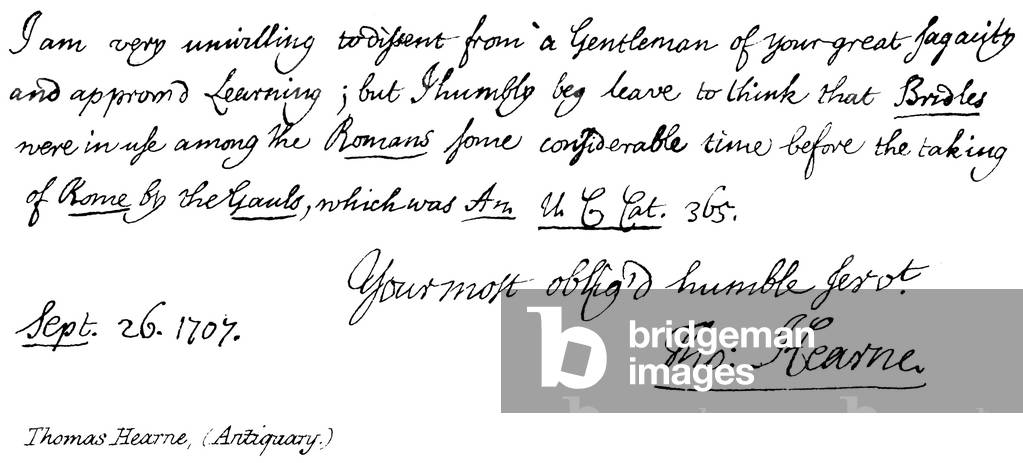 I am very unwilling to dissent from a Gentleman of your great sagacity
and approv'd Learning; but I humbly beg leave to think that Bridles
were in use among the Romans some considerable time before the taking
of Rome by the Gauls, which was An. U. C. Cat. 365.
Your most oblig'd humble servt.
Sept. 26. 1707.
Tho: Hearne.
bridgeman
images
Thomas Hearne, (Antiquary.)